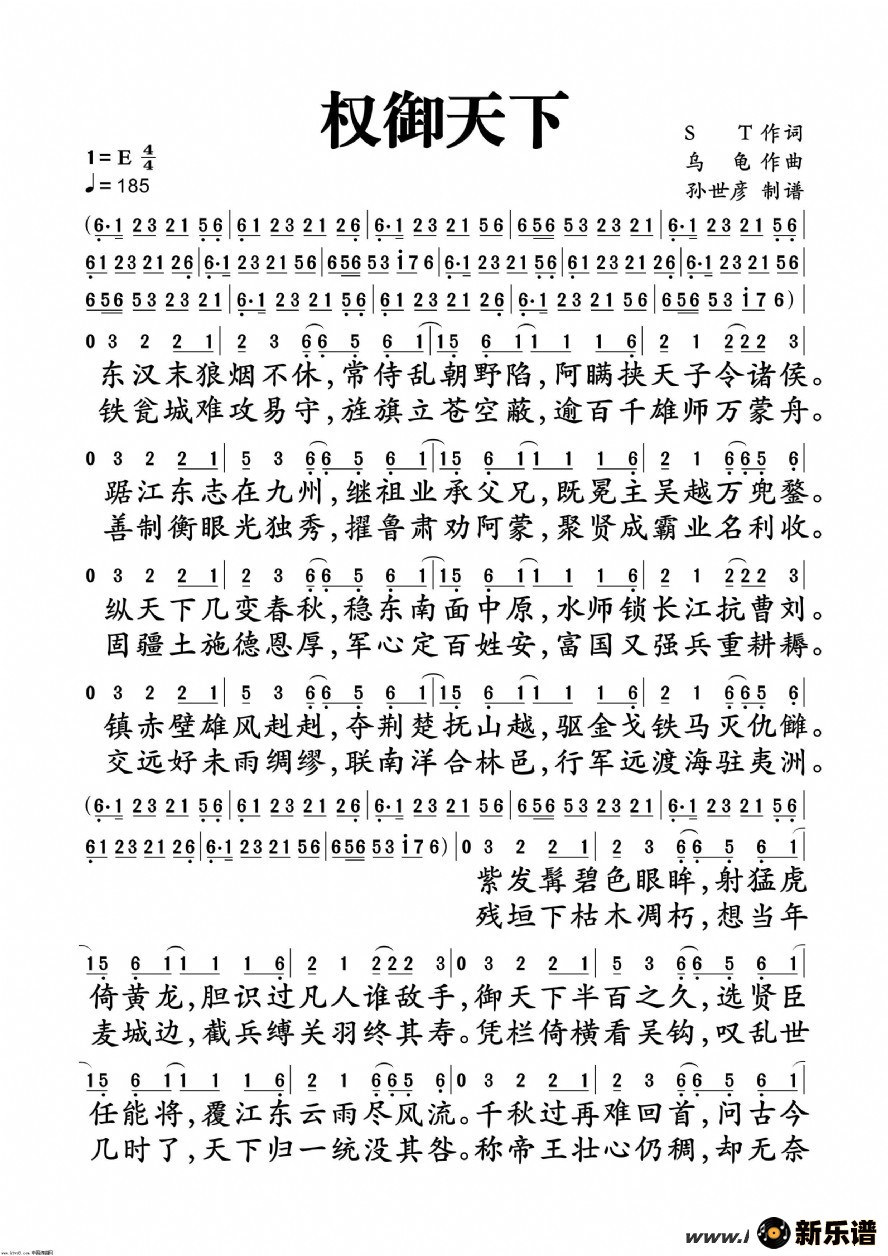 权御天下
S T作词
1=E 4/4
乌 龟 作曲
♩=185
孙世彦 制谱
(6·1 23 21 56|61 23 21 26|6·1 23 21 56|656 53 23 21|6·1 23 21 56|
61 23 21 26|6·1 23 21 56|656 53 i76|6·1 23 21 56|61 23 21 26|6·1 23 21 56|
656 53 23 21|6·1 23 21 56|61 23 21 26|6·1 23 21 56|656 53 i76)|
0 3 2 2 1|2 3 66 5 6 1|15 6 11 1 1 6|2 1 222 3|
东汉末狼烟不休,常侍乱朝野陷,阿瞒挟天子令诸侯。
铁瓮城难攻易守,旌旗立苍空蔽,逾百千雄师万蒙舟。
0 3 2 2 1|5 3 66 5 6 1|15 6 11 1 1 6|2 1 665 6|
踞江东志在九州,继祖业承父兄,既冕主吴越万兜鍪。
善制衡眼光独秀,擢鲁肃劝阿蒙,聚贤成霸业名利收。
0 3 2 2 1|2 3 66 5 6 1|15 6 11 1 1 6|2 1 222 3|
纵天下几变春秋,稳东南面中原,水师锁长江抗曹刘。
固疆土施德恩厚,军心定百姓安,富国又强兵重耕耨。
0 3 2 2 1|5 3 66 5 6 1|15 6 11 1 1 6|2 1 665 6|
镇赤壁雄风赳赳,夺荆楚抚山越,驱金戈铁马灭仇雠。
交远好未雨绸缪,联南洋合林邑,行军远渡海驻夷洲。
(6·1 23 21 56|61 23 21 26|6·1 23 21 56|656 53 23 21|6·1 23 21 56|
61 23 21 26|6·1 23 21 56|656 53 i76)|0 3 2 2 1|2 3 66 5 6 1|
紫发髯碧色眼眸,射猛虎
残垣下枯木凋朽,想当年
15 6 11 1 1 6|2 1 222 3|0 3 2 2 1|5 3 66 5 6 1|
倚黄龙,胆识过凡人谁敌手,御天下半百之久,选贤臣
麦城边,截兵缚关羽终其寿。凭栏倚横看吴钩,叹乱世
15 6 11 1 1 6|2 1 665 6|0 3 2 2 1|2 3 66 5 6 1|
任能将,覆江东云雨尽风流。千秋过再难回首,问古今
几时了,天下归一统没其咎。称帝王壮心仍稠,却无奈
新乐谱